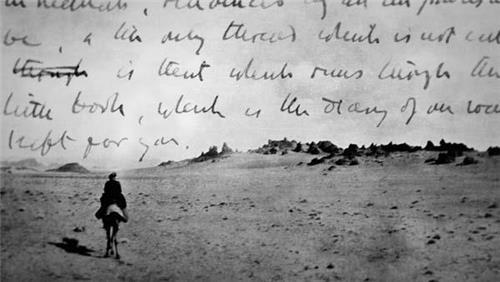 by all
be, a thin only thread which is not cut
though is that which runs through the
little book, which is the diary of our road
kept for you.